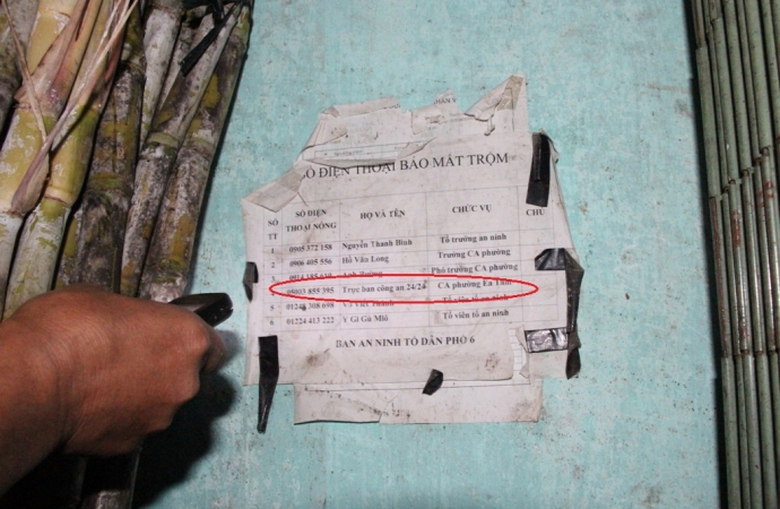 SỐ ĐIỆN THOẠI BÁO MẤT TRỘM
SỐ TT SỐ ĐIỆN THOẠI NÓNG HỌ VÀ TÊN CHỨC VỤ CHÚ
1 0905 372 158 Nguyễn Thanh Bình Tổ trưởng an ninh
2 0906 405 556 Hồ Văn Long Trưởng CA phường
3 Phó trưởng CA phường
855 395 Trực ban công an 24/24 CA phường Ea Tam
5 308 698 Tổ viên tổ an ninh
6 01224 413 222 Y Gi Gù Mlô Tổ viên tổ an ninh
BAN AN NINH TỔ DÂN PHỐ 6